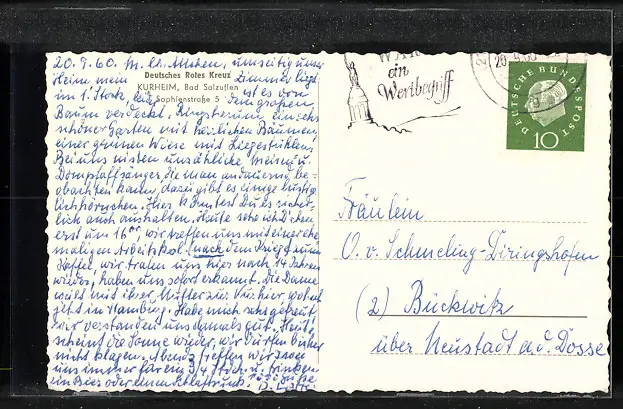 20.9.60. M. lb. umseitig unser
Heim mein Zimmer liegt
Deutsches Rotes Kreuz
KURHEIM, Bad Salzuflen
Sophienstraße 5
im 1. Stock, ist es vom großen
Baum verdeckt. Ringsherum ein sehr
schöner Garten mit herrlichen Bäumen,
einer grünen Wiese mit Liegestühlen.
Bei uns nisten unzählige Meisen u.
Dompfaffsänger die man andauernd be-
obachten kann, dazu gibt es einige lustige
Eichhörnchen. Hier könntest Du es sicher-
lich auch aushalten. Heute sehe ich
erst um 16 wir treffen uns mit einer ehe
maligen Arbeitskol. nach dem Krieg zum
Kaffee, wir trafen uns hier nach 14 Jahren
wieder, haben uns sofort erkannt. Die Dame
mit ihrer Mutter zur Kur hier wohnt
jetzt in Hamburg. Habe mich sehr gefreut
wir verstanden uns damals gut. Heute
scheint die Sonne wieder, wir dürfen bisher
nicht klagen. Abends treffen wir
uns immer für ein 3/4 Std. u. trinken
ein Bier oder einen Schlaftrunk.
ein
Wertbegriff
DEUTSCHE BUNDESPOST
10
Fräulein
O. v. Schmeling-Diringshofen
(2) Bückwitz
über Neustadt a. d. Dosse